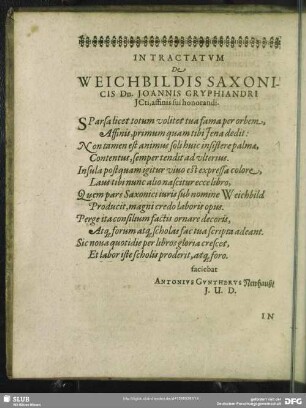 IN TRACTATVM
De
WEICHBILDIS SAXONI-
CIS Dn. JOANNIS GRYPHIANDRI
JCti, affinis sui honorandi.
SParsa licet totum volitet tua fama per orbem,
Affinis, primum quam tibi Jena dedit:
Non tamen est animus soli huic insistere palmæ,
Contentus, semper tendit ad vlterius.
Insula postquam igitur vivo est expressa colore,
Laus tibi nunc alio nascitur ecce libro,
Quem pars Saxonici iuris sub nomine Weichbild
Producit, magni credo laboris opus.
Perge ita consilium factis ornare decoris,
Atq, forum atq, scholas sac tua scripta adeant.
Sic nova quotidie per libros gloria crescet,
Et labor iste scholis proderit, atq, foro.
faciebat
ANTONIVS GVNTHERVS
J. U. D.
IN
SLUB
Wir führen Wissen.
DFG